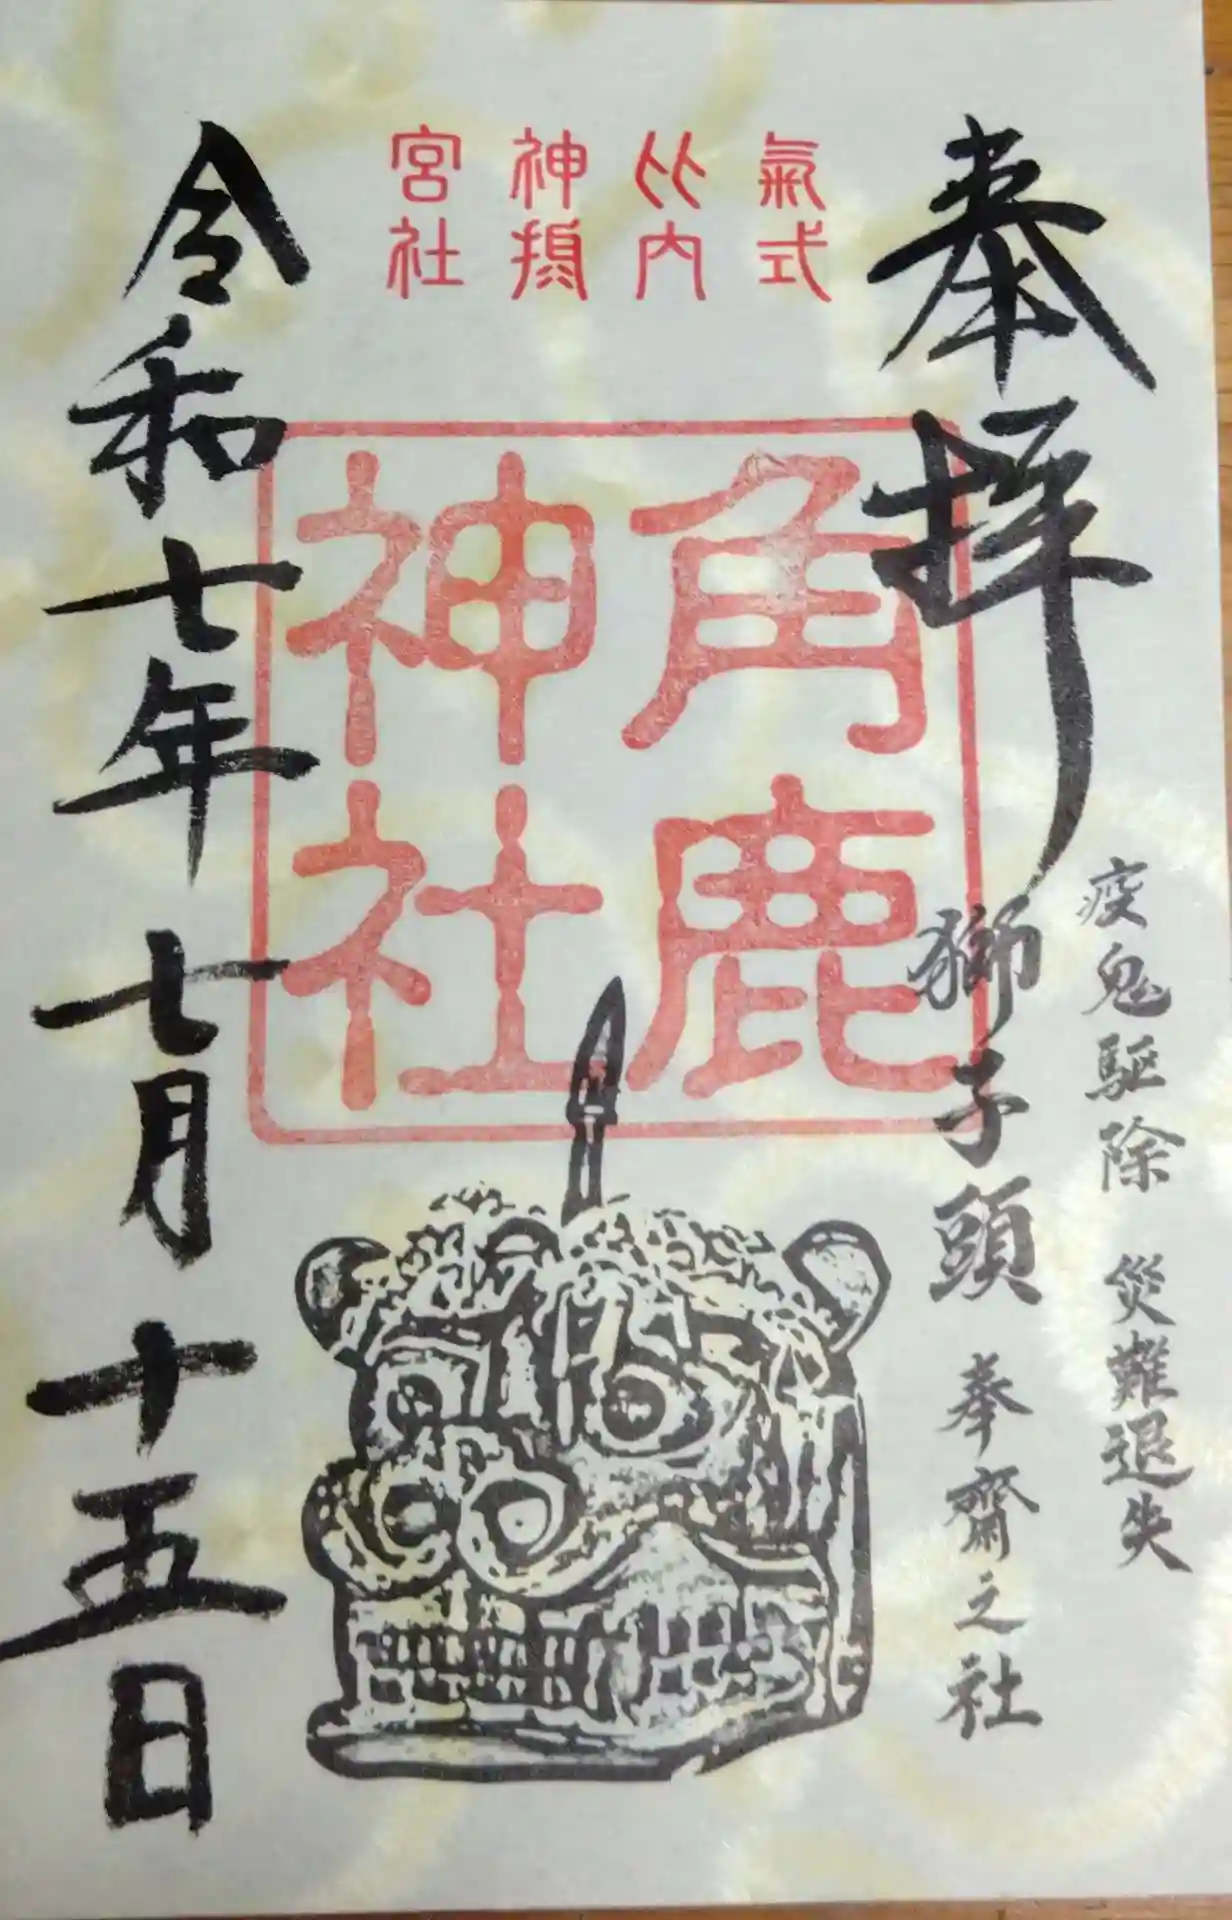 奉拝
疫鬼驅除 災難退失
獅子頭 奉齋之社
氣比神宮
式内摂社
角鹿
神社
令和七年七月十五日